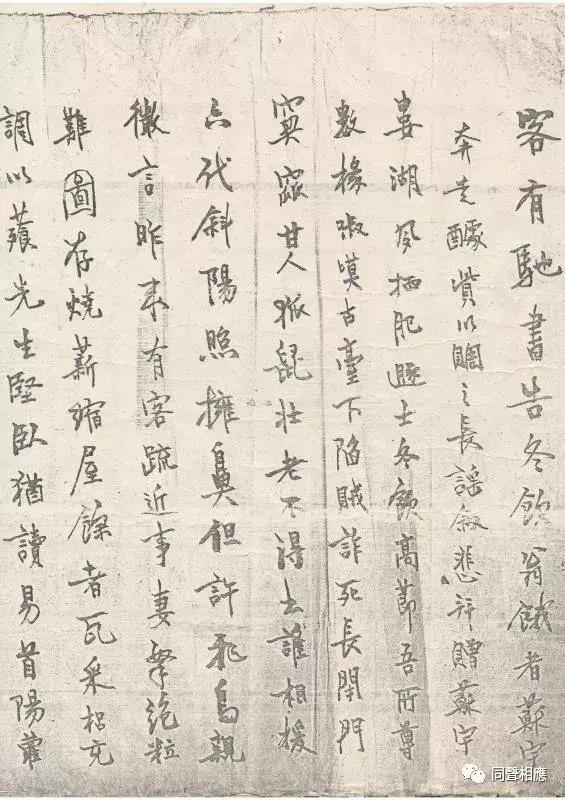 客有馳書告冬飲翁餓者蘇宇
奔走醵貲以賙之長謡叙悲并贈蘇宇
婁湖風栖肥遯士冬飲高節吾所尊
數椽古臺下陷賊詐死長閉門
窫窳甘人狐鼠壯老不得去誰相援
六代斜陽照擁鼻但許飛鳥親
微言昨來有客疏近事妻孥絶粒
難圖存燒薪縮屋餘者瓦采梠充
調以先生堅臥猶讀易首陽
同聲相應